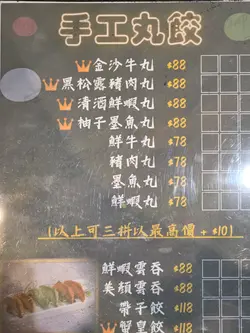 手工丸餃
金沙牛丸 $88
黑松露豬肉丸 $88
清酒鮮蝦丸 $88
柚子墨魚丸 $88
鮮牛丸 $78
豬肉丸 $78
墨魚丸 $78
鮮蝦丸 $78
(以上可三拼以最高價+$10)
鮮蝦雲吞 $88
美顏雲吞 $88
帶子餃 $118
皇餃 $118